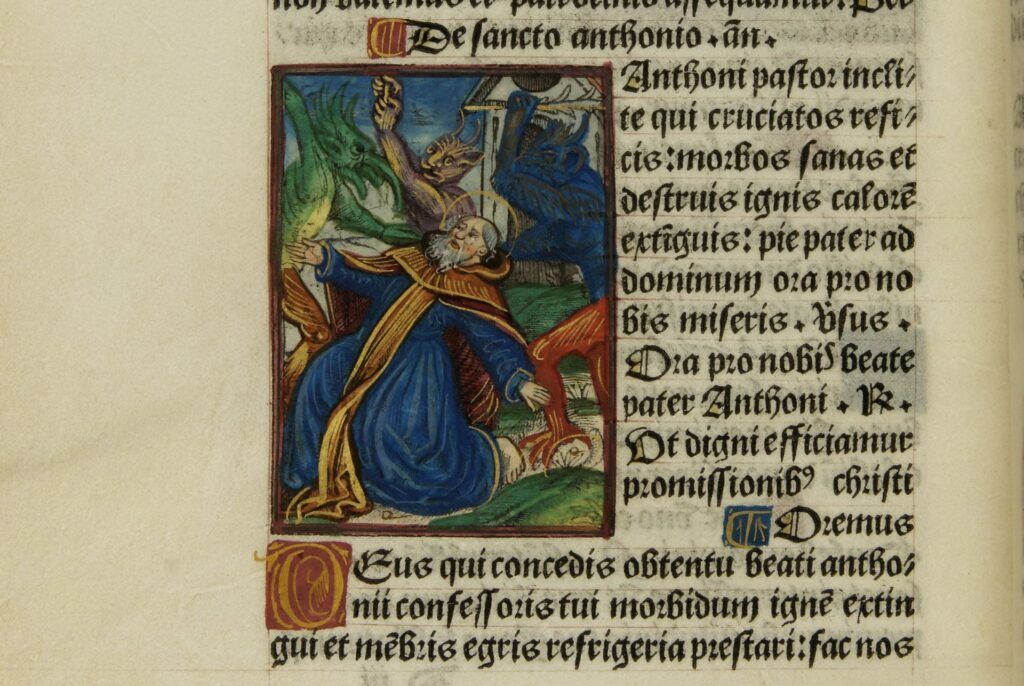 non valemus et patrocinio assequamur. Per
De sancto anthonio. añ.
Anthoni pastor incli/
te qui cruciatos refi/
cis: morbos sanas et
destruis ignis calorē
extīguis: pie pater ad
dominum ora pro no
bis miseris. V̄sus.
Ora pro nobis beate
pater Anthoni. ℟.
Ut digni efficiamur
promissionibꝰ christi
Oremus
DEus qui concedis obtentu beati antho/
nii confessoris tui morbidum ignē extin
gui et mēbris egris refrigeria prestari: fac nos